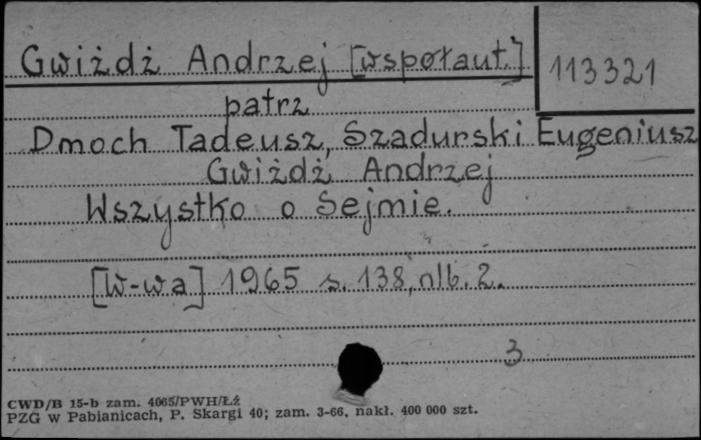 Gwiżdż Andrzej [współaut.]
113321
patrz
Dmoch Tadeusz, Szadurski Eugeniusz
Gwiżdż Andrzej
Wszystko o Sejmie.
[W-wa] 1965 s. 138, nlb. 2.
3
CWD/B 15-b zam. 4065/PWH/Łź
PZG w Pabianicach, P. Skargi 40; zam. 3-66, nakł. 400 000 szt.